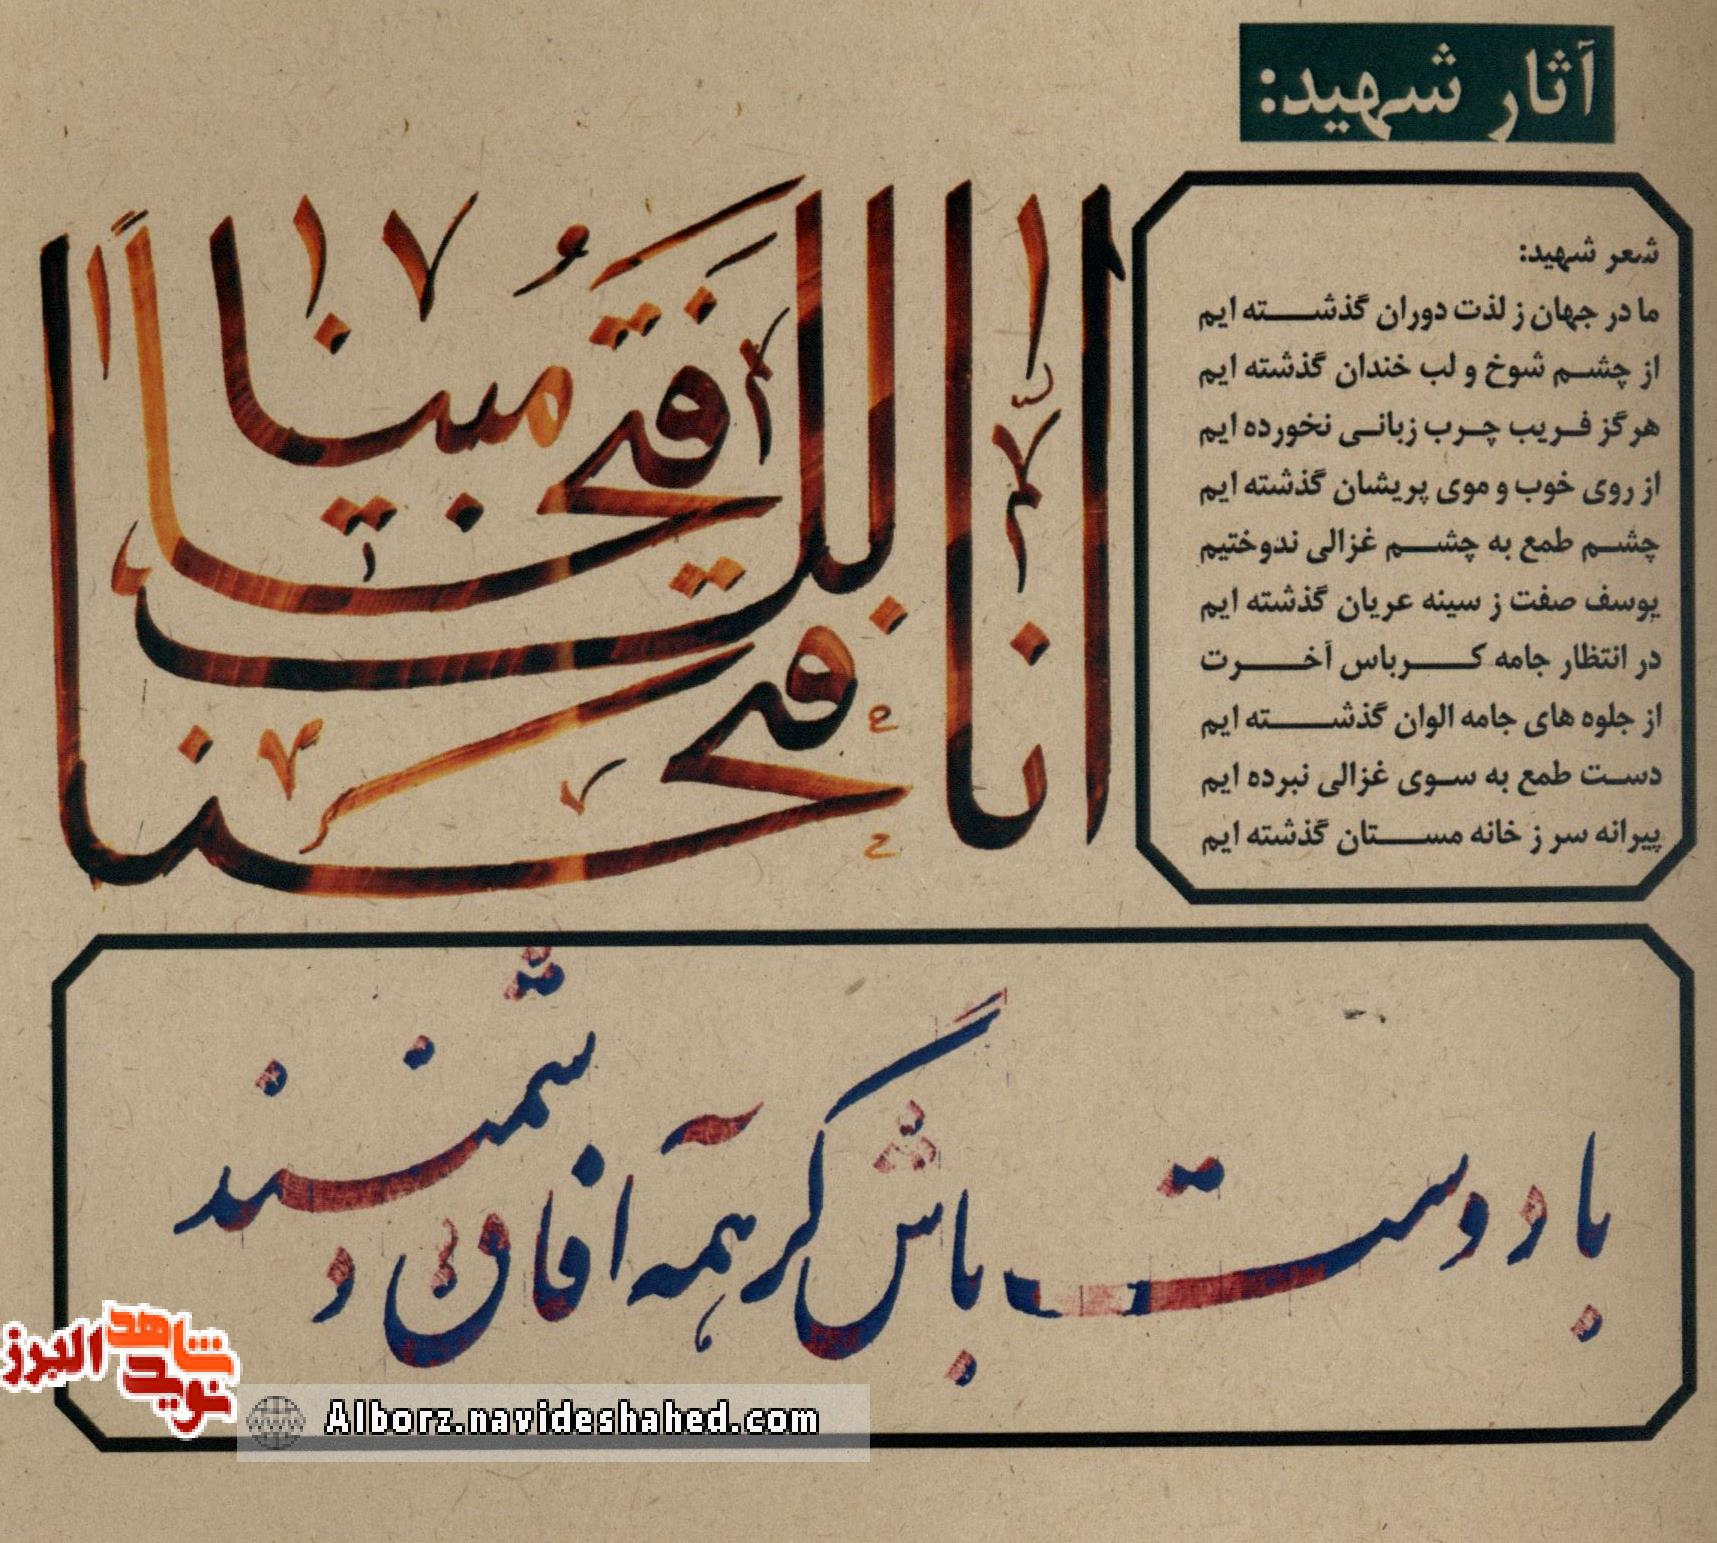 آثار شهید:
شعر شهید:
ما در جهان ز لذت دوران گذشته ایم
از چشم شوخ و لب خندان گذشته ایم
هرگز فریب چرب زبانی نخورده ایم
از روی خوب و موی پریشان گذشته ایم
چشم طمع به چشم غزالی ندوختیم
یوسف صفت ز سینه عریان گذشته ایم
در انتظار جامه کرباس آخرت
از جلوه های جامه الوان گذشته ایم
دست طمع به سوی غزالی نبرده ایم
پیرانه سر ز خانه مستان گذشته ایم
انا فتحنا لک فتحا مبینا
با دوست باش گر همه آفاق دشمنند
نوید شاهد البرز
Alborz.navideshahed.com